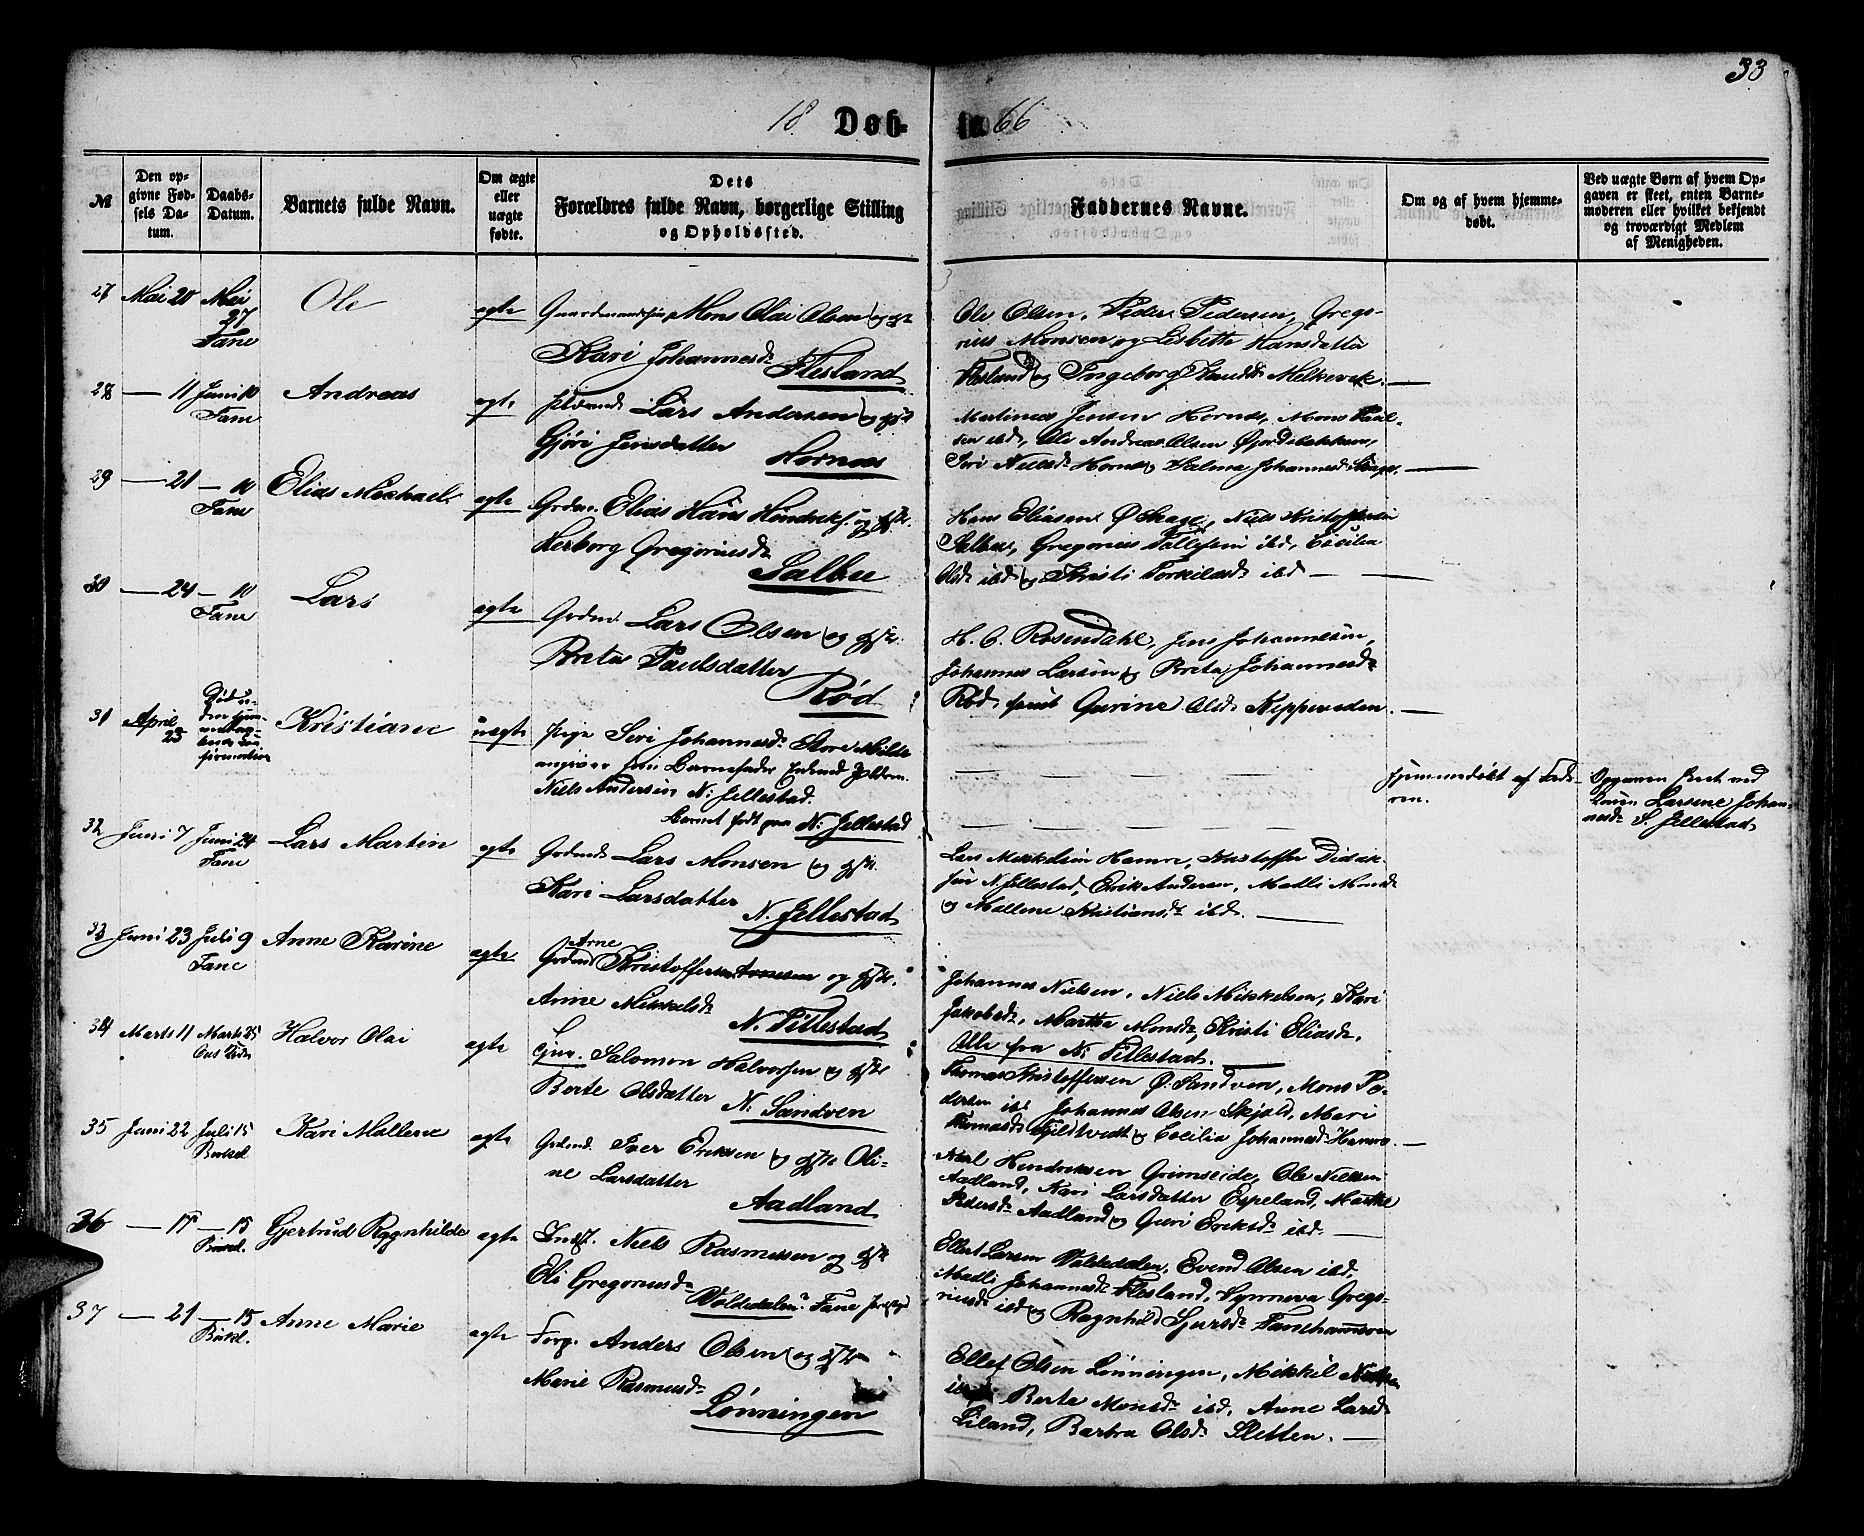 33
18 Døb- te 66
№
Den op-
givne Fød-
sels Da-
tum.
Daabs-
Datum.
Barnets fulde Navn.
Om ægte
eller
uægte
fødte.
Dets
Forældres fulde Navn, borgerlige Stilling
og Opholdssted.
Faddernes Navne.
Om og af hvem hjemme-
døbt.
Ved uægte Børn af hvem Op-
gaven er skeet, enten Barne-
moderen eller hvilket bekjendt
og troværdigt Medlem
af Menigheden.
27 Mai 20 Mai
27
Fane
Ole
egte
Mons Olai Olsen og
Kari Johannesd.
Flesland
Ole Olsen, Peder Pedersen, Greg-
rius Monsen og Lisbette Hansdatter
Flesland og Ingeborg Melkevik.
28 — 11 Juni 10
Fane
Andreas
egte
Lars Andersen og
Gjøri Jensdatter
Hornæs
Martinus Jensen Hornæs, Mons Paul-
sen ibd, Ole Andreas Olsen Gjordsbakken,
Siri Nielsd. Hornæs, Johannesd. Skage.
29 — 21 — 10
Fane
Elias Michael
egte
Grdm. Elias Hans Hendriks. og
Herborg Gregoriusd.
Salbu
Hans Eliasen Ø Skage, Niels Kristoffersen
Salbu, Gregorius Tollefsen ibd, Cecilia
Olsd. ibd og Kristi Torkildsd. ibd —
30 — 24 — 10
Fane
Lars
egte
Grdm. Lars Olsen og
Breta Paulsdatter
Rød
H. C. Rosendahl, Jens Johannesen,
Johannes Larsen og Breta Johannesd.
Rød samt Gurine Olsd. Kippersden.
31 April
23
Kristiane
uægte
Pige Siri Johannesd. Store Milde
angiver som Barnefader
Niels Andersen N. Jellestad.
Barnet født paa N. Jellestad
— — — — — —
Hjemmedøbt af Fade-
ren.
Opgaven skeet ved
Konen Larsine Johan-
nesd. S. Jellestad
32 Juni 7 Juni 24
Fane
Lars Martin
egte
Grdmd. Lars Monsen og
Kari Larsdatter
N. Jellestad
Lars Mikkelsen Hamre, Kristoffer Didrik-
sen N. Jellestad, Erik Andersen, Madli Monsd.
og Mallene Kristiansd. ibd. —
33 Juni 23 Juli 9
Fane
Anne Karine
egte
Arne
Grdmd. Kristoffersen Arnesen og
Anne Mikkelsd.
N. Titlestad
Johannes Nielsen, Niels Mikkelsen, Kari
Jakobsd., Marthe Monsd., Kristi Eliasd.
Alle fra N. Titlestad.
34 Marts 11 Marts 25
Halvor Olai
egte
Salomon Halvorsen og
Berte Olsdatter
N. Sandven
Thomas Kristoffersen Ø. Sandven, Mons Pe-
dersen ibd. Johannes Olsen Skjold, Mari
Thomasd. Hjeldtvedt og Cecilia Johannesd. Hamre.
35 Juni 22 Juli 15
Birkel.
Kari Mallene
egte
Grdmd. Iver Eriksen og Oli-
ne Larsdatter
Aadland
Karl Hendriksen Grimseide, Ole Nielsen
Aadland, Kari Larsdatter Espeland, Marthe
Pedersd. Aadland og Guri Eriksd. ibd. —
36 — 17 — 15
Birkel.
Gjertrud Rognhilde
egte
Indst. Niels Rasmussen og
Eli Gregoriusd.
Voldedalen Fane
Ellert Larsen Voldedalen, Evend Olsen ibd,
Madli Johannesd. Flesland, Synneva Greg-
riusd. ibd og Ragnhild Sjursd. Fanehammeren
37 — 21 — 15
Birkel.
Anne Marie
egte
Forp. Anders Olsen og
Marie Rasmusd.
Lønningen
Ellef Olsen Lønningen, Mikkel
Berte Monsd. ibd, Anne Larsd.
Liland, Barbra Olsd. Sletten. —